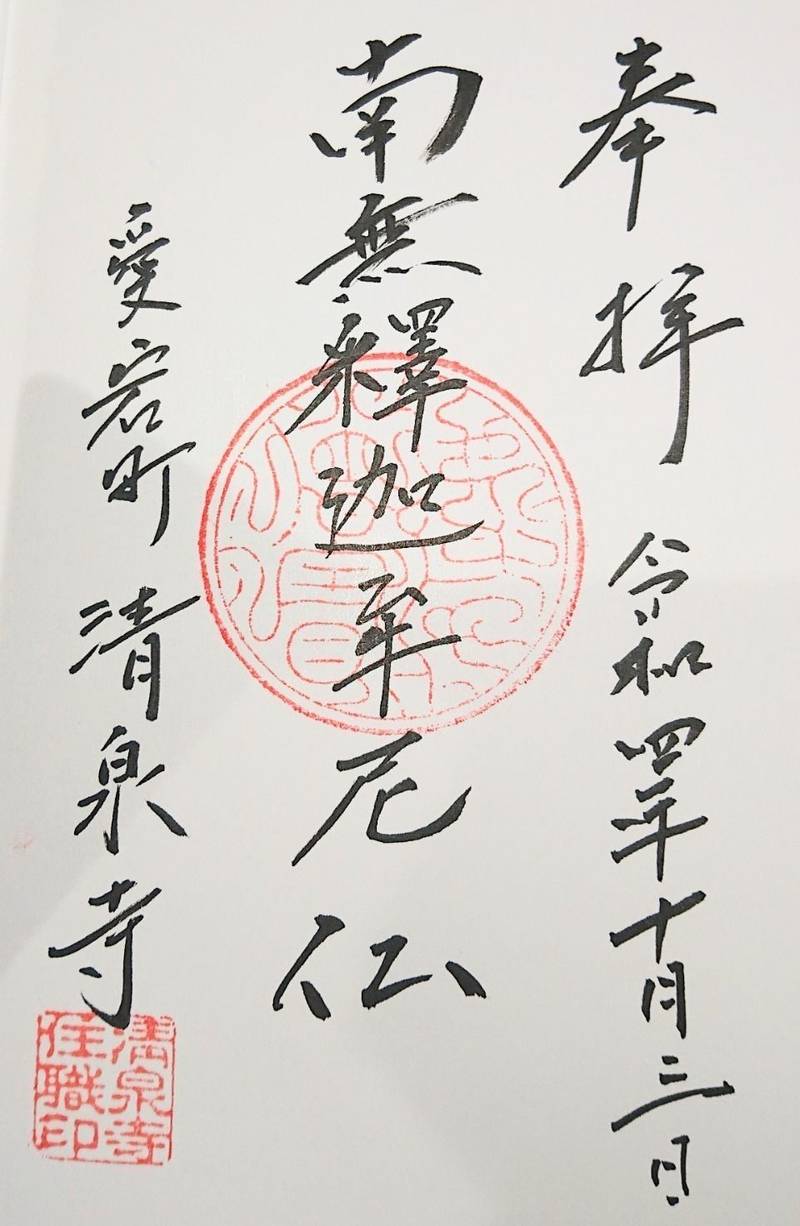 奉拝 令和四年十月三日
南無釋迦牟尼仏
愛宕町 清泉寺
清泉寺
住職印